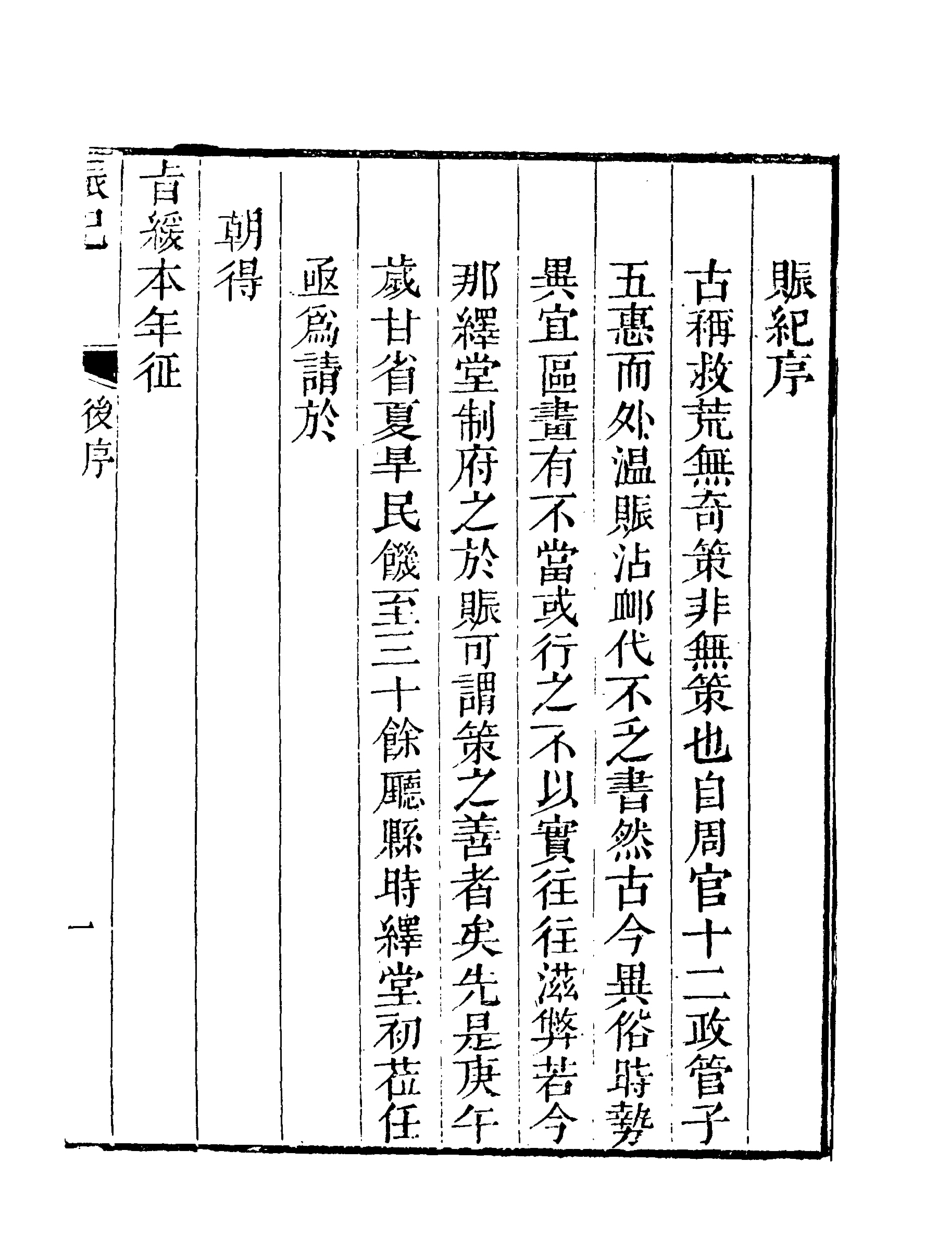 賑紀序
古稱救荒無奇策非無策也自周官十二政管子
五惠而外溫賑沾卹代不乏書然古今異俗時勢
異宜區畫有不當或行之不以實往往滋弊若今
那繹堂制府之於賑可謂策之善者矣先是庚午
歲甘省夏旱民饑至三十餘廳縣時繹堂初蒞任
亟爲請於
朝得
旨緩本年征
賑紀
後序
一